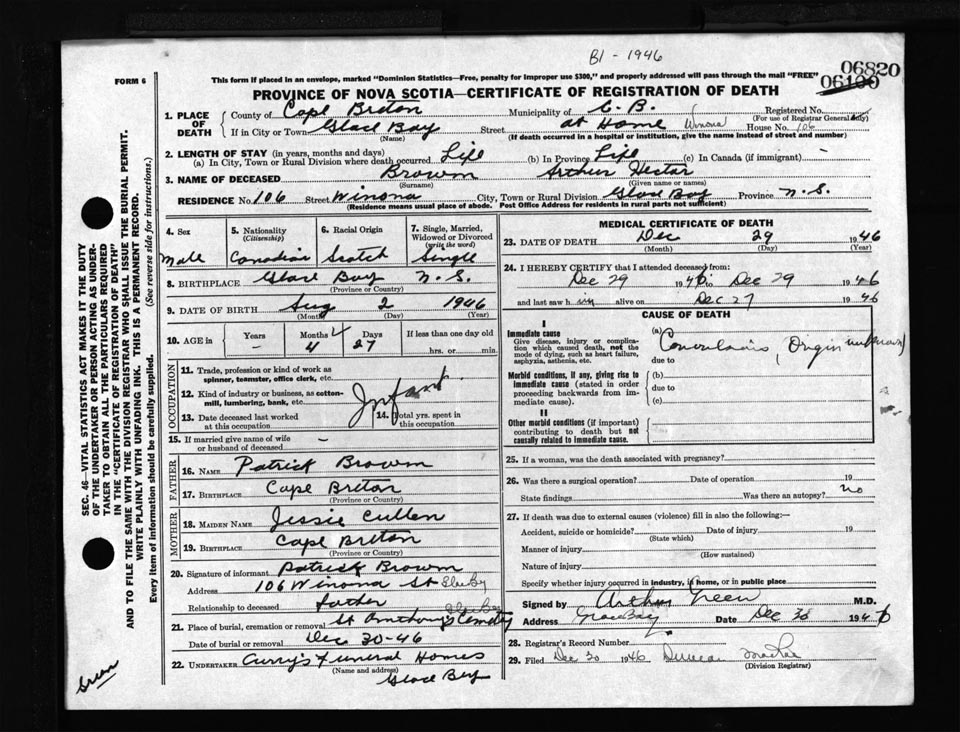 B1 - 1946
06820
06100
FORM 6
This form if placed in an envelope, marked "Dominion Statistics—Free, penalty for improper use $300," and properly addressed will pass through the mail "FREE"
PROVINCE OF NOVA SCOTIA—CERTIFICATE OF REGISTRATION OF DEATH
1. PLACE OF DEATH
County of Cape Breton Municipality of C. B. Registered No.
(For use of Registrar General only)
If in City or Town Glace Bay Street at Home Winona House No. 106
(Name) (If death occurred in a hospital or institution, give the name instead of street and number)
2. LENGTH OF STAY (in years, months and days)
(a) In City, Town or Rural Division where death occurred Life (b) In Province Life (c) In Canada (if immigrant) -
3. NAME OF DECEASED Brown Arthur Hector
(Surname) (Given name or names)
RESIDENCE No. 106 Street Winona City, Town or Rural Division Glace Bay Province N.S.
(Residence means usual place of abode. Post Office Address for residents in rural parts not sufficient)
4. Sex
Male
5. Nationality (Citizenship)
Canadian
6. Racial Origin
Scotch
7. Single, Married, Widowed or Divorced (write the word)
Single
8. BIRTHPLACE Glace Bay N.S.
(Province or Country)
9. DATE OF BIRTH Aug 2 1946
(Month) (Day) (Year)
10. AGE in
Years -
Months 4 4
Days 27
If less than one day old
hrs. or min.
OCCUPATION
11. Trade, profession or kind of work as spinner, teamster, office clerk, etc.
12. Kind of industry or business, as cotton-mill, lumbering, bank, etc.
Infant
13. Date deceased last worked at this occupation
14. Total yrs. spent in this occupation
15. If married give name of wife or husband of deceased -
FATHER
16. NAME Patrick Brown
17. BIRTHPLACE Cape Breton
(Province or Country)
MOTHER
18. MAIDEN NAME Jessie Cullen
19. BIRTHPLACE Cape Breton
(Province or Country)
20. Signature of informant Patrick Brown
Address 106 Winona St
Relationship to deceased father
21. Place of burial, cremation or removal St Anthony's Cemetery
Date of burial or removal Dec 30-46
22. UNDERTAKER Curry's Funeral Homes
(Name and address)
Glace Bay
MEDICAL CERTIFICATE OF DEATH
23. DATE OF DEATH Dec 29 1946
(Month) (Day) (Year)
24. I HEREBY CERTIFY that I attended deceased from:
Dec 29 1946 to Dec 29 1946
and last saw h im alive on Dec 27 1946
CAUSE OF DEATH
I
Immediate cause
Give disease, injury or complication which caused death, not the mode of dying, such as heart failure, asphyxia, asthenia, etc.
(a) Convulsions (Origin unknown)
due to
Morbid conditions, if any, giving rise to immediate cause (stated in order proceeding backwards from immediate cause).
(b)
due to
(c)
II
Other morbid conditions (if important) contributing to death but not causally related to immediate cause.
25. If a woman, was the death associated with pregnancy?
26. Was there a surgical operation? Date of operation 19
State findings Was there an autopsy? no
27. If death was due to external causes (violence) fill in also the following:—
Accident, suicide or homicide? Date of injury 19
(State which)
Manner of injury
(How sustained)
Nature of injury
Specify whether injury occurred in industry, in home, or in public place
Signed by Arthur Green M.D.
Address Glace Bay Date Dec 30 194
28. Registrar's Record Number
29. Filed Dec 30 1946 Duncan MacRae
(Division Registrar)
SEC. 46—VITAL STATISTICS ACT MAKES IT THE DUTY
OF THE UNDERTAKER OR PERSON ACTING AS UNDER-
TAKER TO OBTAIN ALL THE PARTICULARS REQUIRED
IN THE "CERTIFICATE OF REGISTRATION OF DEATH"
AND TO FILE THE SAME WITH THE DIVISION REGISTRAR WHO SHALL ISSUE THE BURIAL PERMIT.
WRITE PLAINLY WITH UNFADING INK. THIS IS A PERMANENT RECORD.
Every item of information should be carefully supplied. (See reverse side for instructions.)
Green